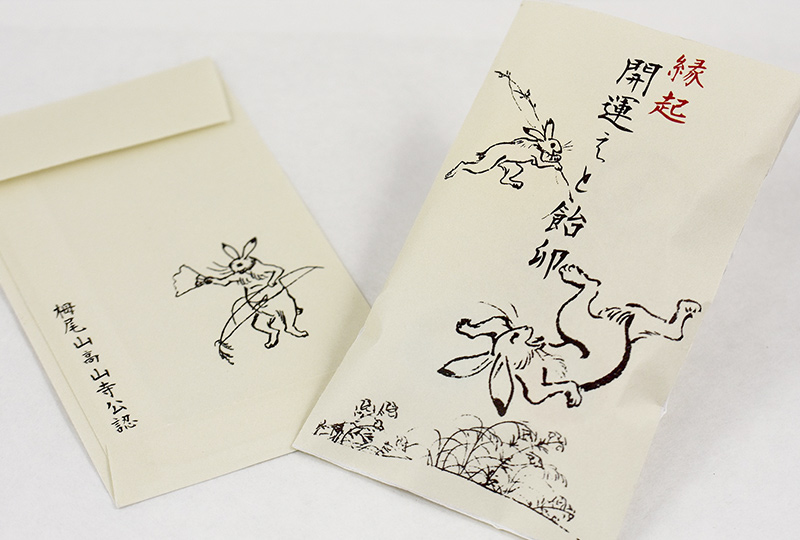 縁起
開運えと飴卯
栂尾山高山寺公認